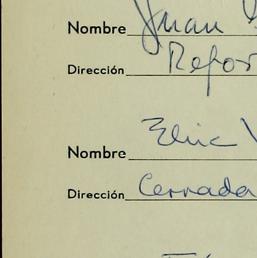 Nombre Juan
Dirección Refor
Nombre
Dirección Cerrada